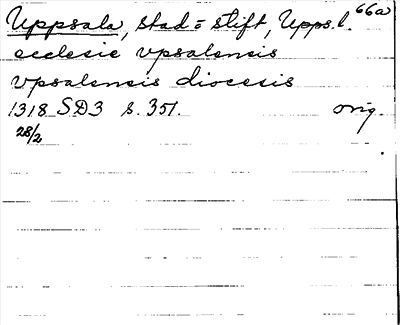 Uppsala, stad = stift, Upps.l. 66a
ecclesie vpsalensis
vpsalensis diocesis
1318 SD3 s. 351. orig.
28/2